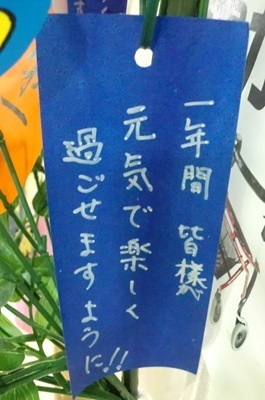 一年間 皆様
元気で楽しく
過ごせますように!!